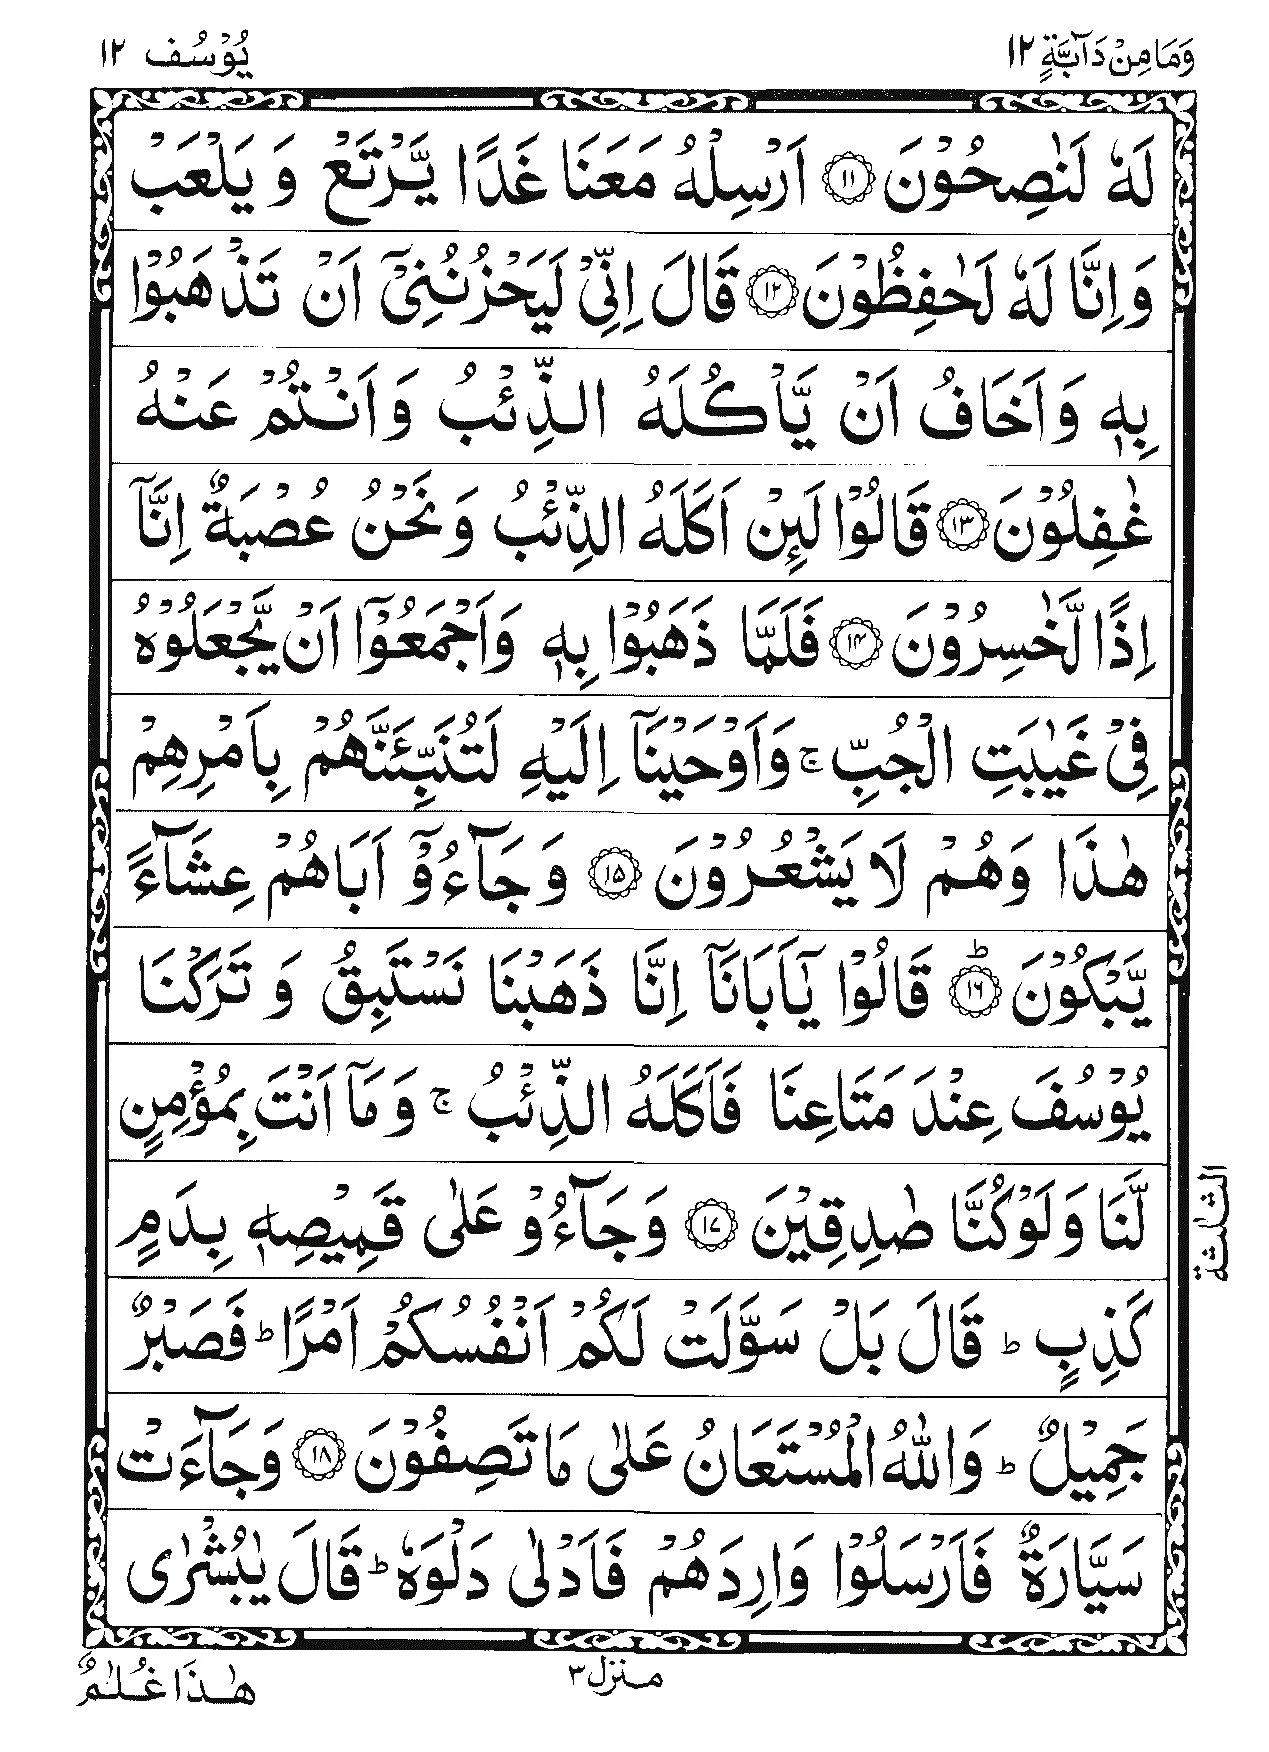 وَمَا مِنْ دَآبَّةٍ ١٢
يُوْسُف ١٢
لَهٗ لَنٰصِحُوْنَ ۝١١ اَرْسِلْهُ مَعَنَا غَدًا يَّرْتَعْ وَ يَلْعَبْ
وَاِنَّا لَهٗ لَحٰفِظُوْنَ ۝١٢ قَالَ اِنِّىْ لَيَحْزُنُنِىْۤ اَنْ تَذْهَبُوْا
بِهٖ وَاَخَافُ اَنْ يَّاْكُلَهُ الذِّئْبُ وَاَنْتُمْ عَنْهُ
غٰفِلُوْنَ ۝١٣ قَالُوْا لَئِنْ اَكَلَهُ الذِّئْبُ وَنَحْنُ عُصْبَةٌ اِنَّاۤ
اِذًا لَّخٰسِرُوْنَ ۝١٤ فَلَمَّا ذَهَبُوْا بِهٖ وَاَجْمَعُوْۤا اَنْ يَّجْعَلُوْهُ
فِىْ غَيٰبَتِ الْجُبِّ ۚ وَاَوْحَيْنَاۤ اِلَيْهِ لَتُنَبِّئَنَّهُمْ بِاَمْرِهِمْ
هٰذَا وَهُمْ لَا يَشْعُرُوْنَ ۝١٥ وَجَآءُوْۤ اَبَاهُمْ عِشَآءً
يَّبْكُوْنَ ؕ۝١٦ قَالُوْا يٰۤاَبَانَاۤ اِنَّا ذَهَبْنَا نَسْتَبِقُ وَ تَرَكْنَا
يُوْسُفَ عِنْدَ مَتَاعِنَا فَاَكَلَهُ الذِّئْبُ ۚ وَمَاۤ اَنْتَ بِمُؤْمِنٍ
لَّنَا وَلَوْ كُنَّا صٰدِقِيْنَ ۝١٧ وَجَآءُوْ عَلٰى قَمِيْصِهٖ بِدَمٍ
كَذِبٍ ؕ قَالَ بَلْ سَوَّلَتْ لَكُمْ اَنْفُسُكُمْ اَمْرًا ؕ فَصَبْرٌ
جَمِيْلٌ ؕ وَاللّٰهُ الْمُسْتَعَانُ عَلٰى مَا تَصِفُوْنَ ۝١٨ وَجَآءَتْ
سَيَّارَةٌ فَاَرْسَلُوْا وَارِدَهُمْ فَاَدْلٰى دَلْوَهٗ ؕ قَالَ يٰبُشْرٰى
الثلثة
منزل ٣
هٰذَا غُلٰمٌ